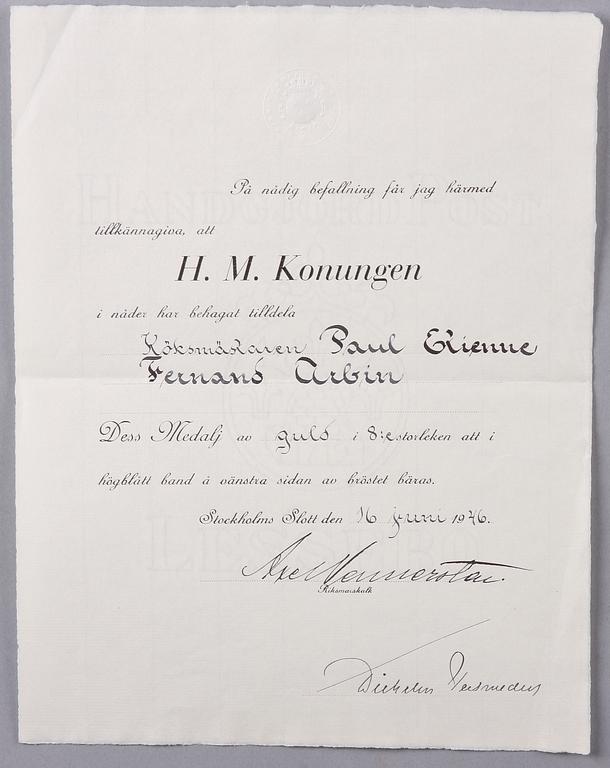 På nådig befallning får jag härmed
tillkännagiva, att
H. M. Konungen
i nåder har behagat tilldela
Köksmästaren Paul Etienne
Fernand Arbin
Dess Medalj av guld i 8:e storleken att i
högblått band å vänstra sidan av bröstet bäras.
Stockholms Slott den 16 juni 1946.
Axel Vennersten.
Riksmarskalk